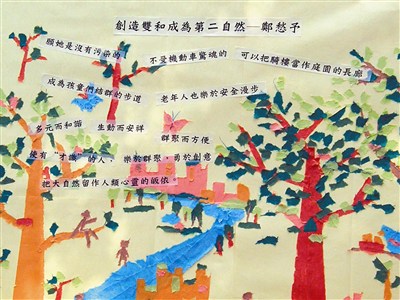 創造雙和成為第二自然—鄭愁子
願她是沒有污染的 不受機動車驚嚇的 可以把騎樓當作庭園的長廊
成為孩童們結群的步道 老年人也樂於安全漫步
多元而和諧 生動而安祥 群聚而方便
使有"才識"的人，樂於群聚，勇於創意
把大自然留作人類心靈的皈依。